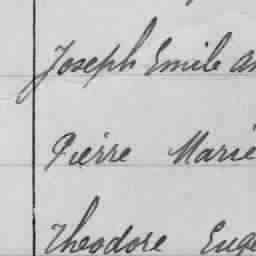 Joseph Emile An
Pierre Marie
Theodore Euge